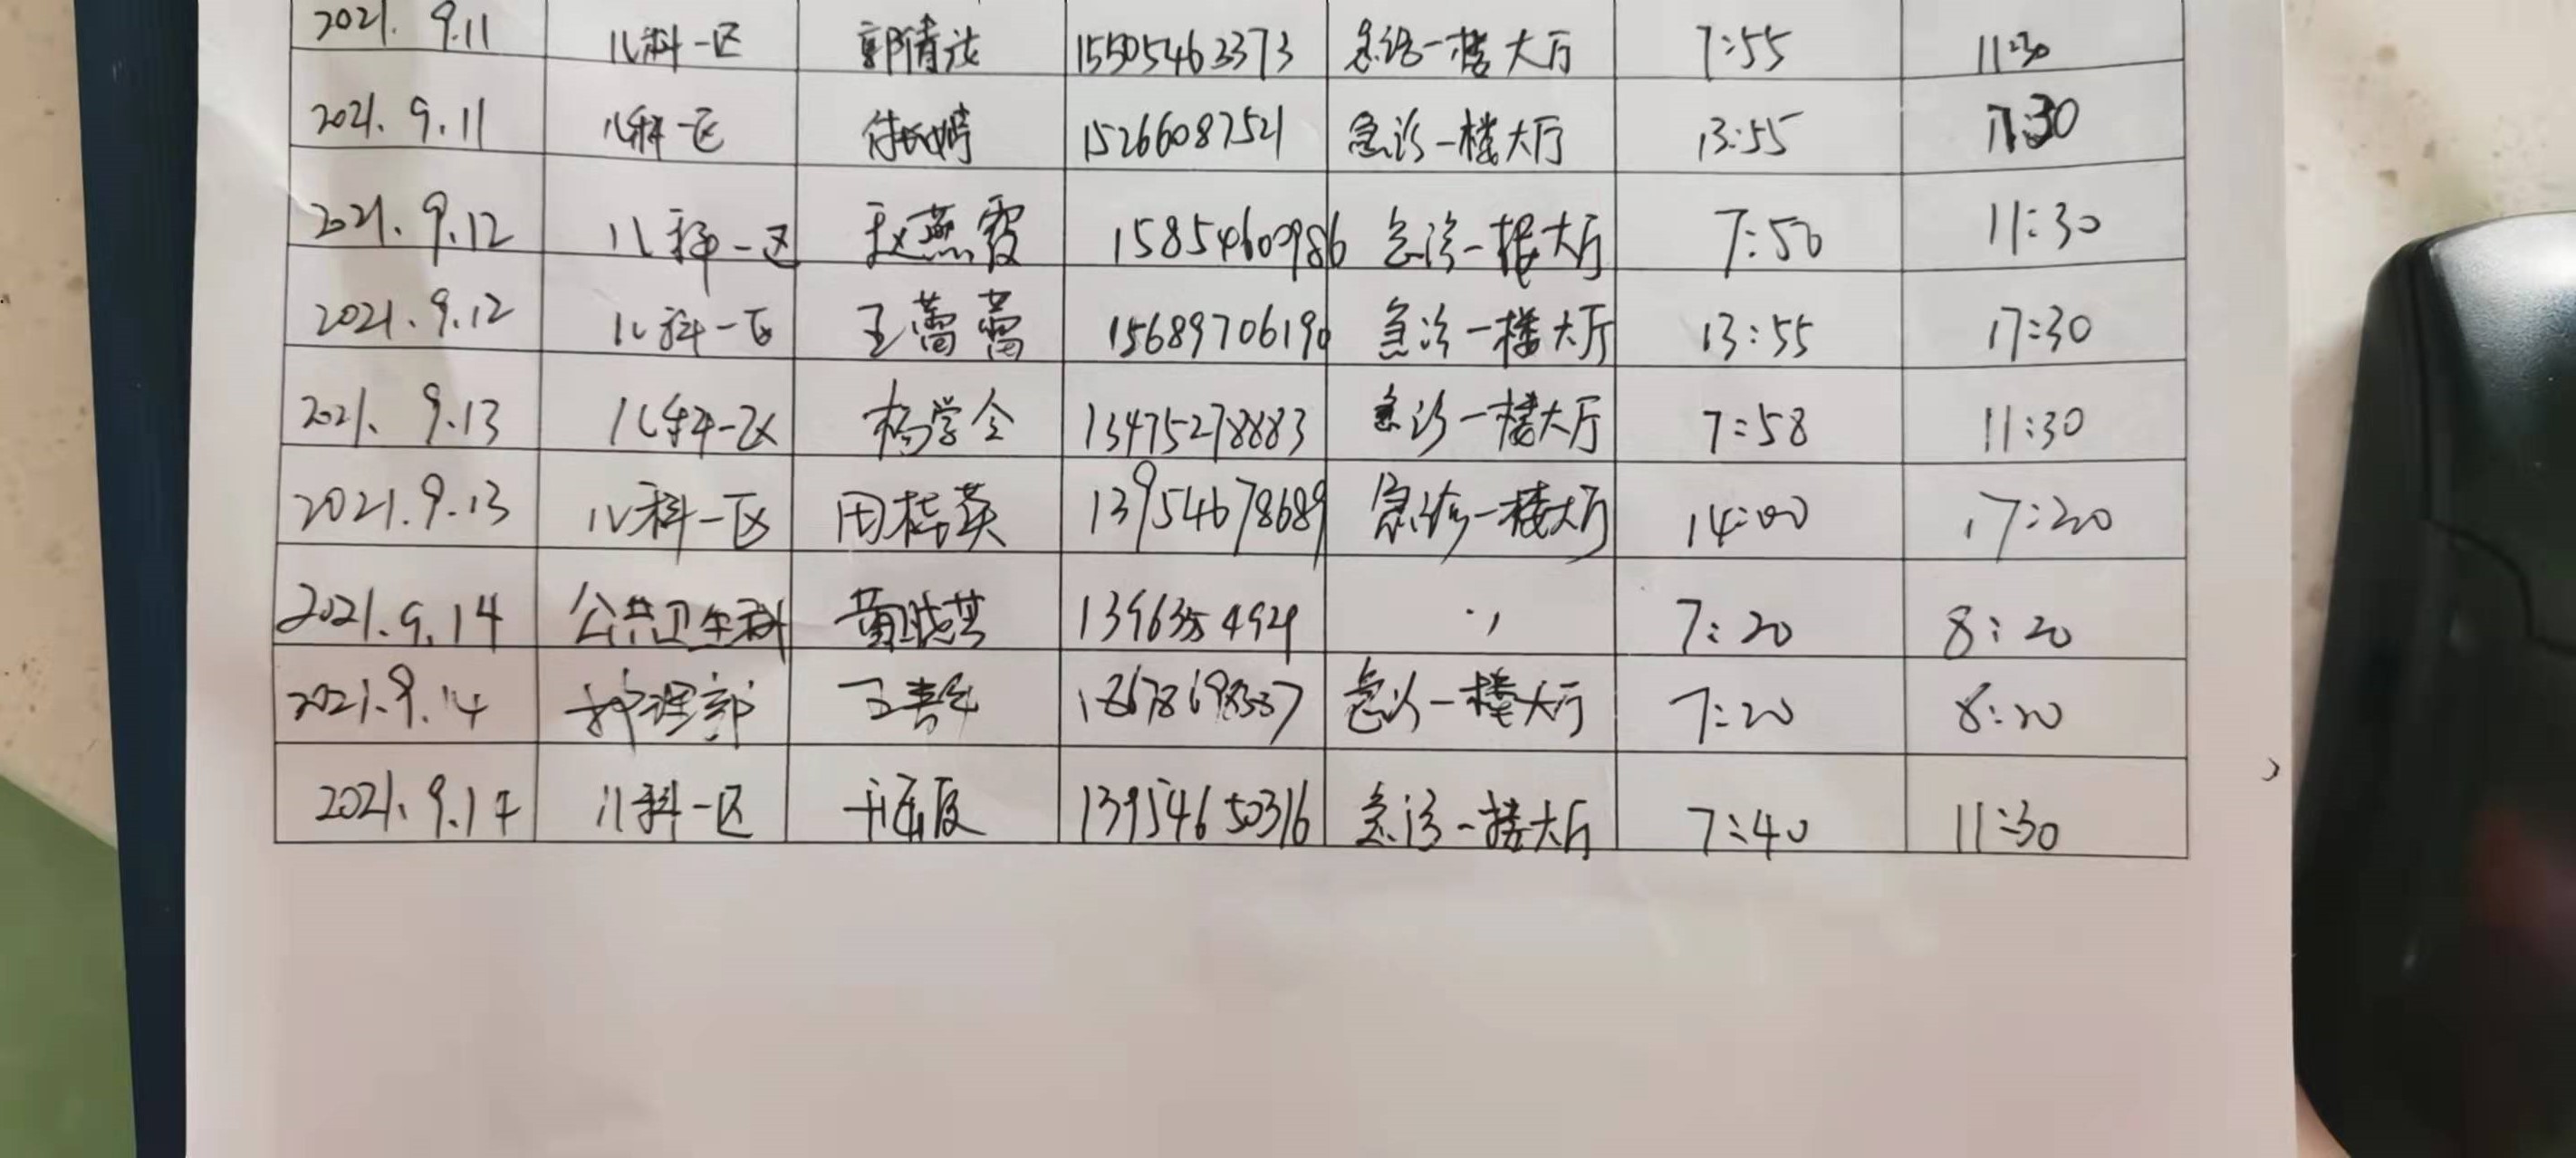 2021. 9.11 儿科一区 郭倩 15505463373 急诊一楼大厅 7:55 11:30
2021. 9.11 儿科一区 15266087521 急诊一楼大厅 13:55 17:30
2021. 9.12 儿科一区 赵燕霞 15854600986 急诊一楼大厅 7:50 11:30
2021. 9.12 儿科一区 王蕾蕾 15689706190 急诊一楼大厅 13:55 17:30
2021. 9.13 儿科一区 杨学全 13475278883 急诊一楼大厅 7:58 11:30
2021.9.13 儿科一区 田桂英 13954678689 急诊一楼大厅 14:00 17:20
2021.9.14 公共卫生科 黄 7:20 8:20
2021.9.14 护理部 王 急诊一楼大厅 7:20 8:20
2021. 9.14 儿科一区 13954650316 急诊一楼大厅 7:40 11:30